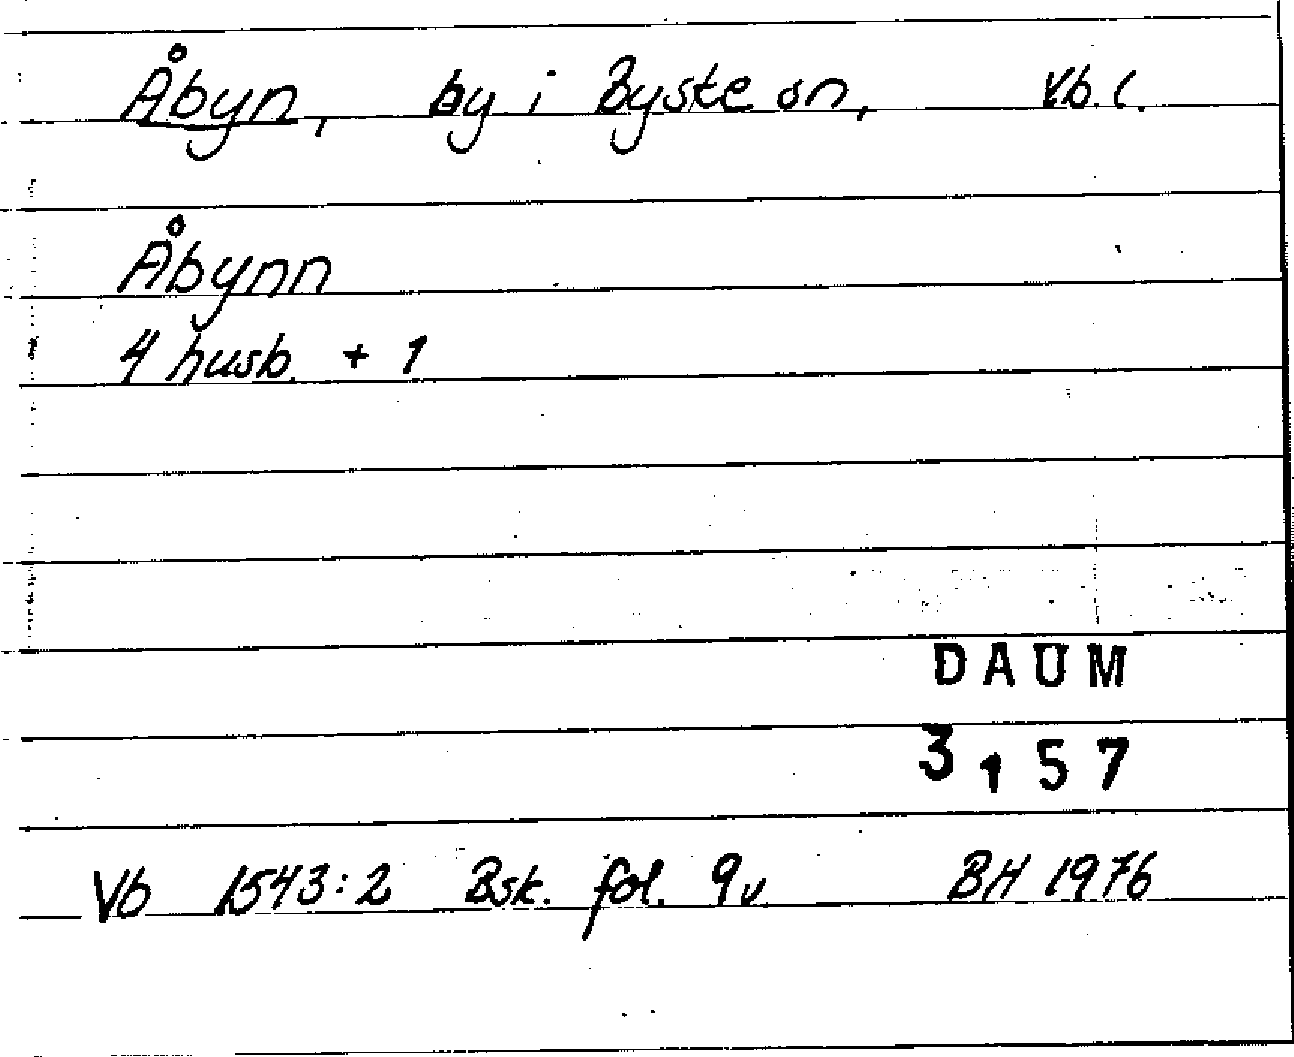 Åbyn, by i Byske sn, Vb. l.
Åbynn
4 husb. + 1
DAUM
3157
Vb 1543:2 Bsk. fol. 9v BH 1976